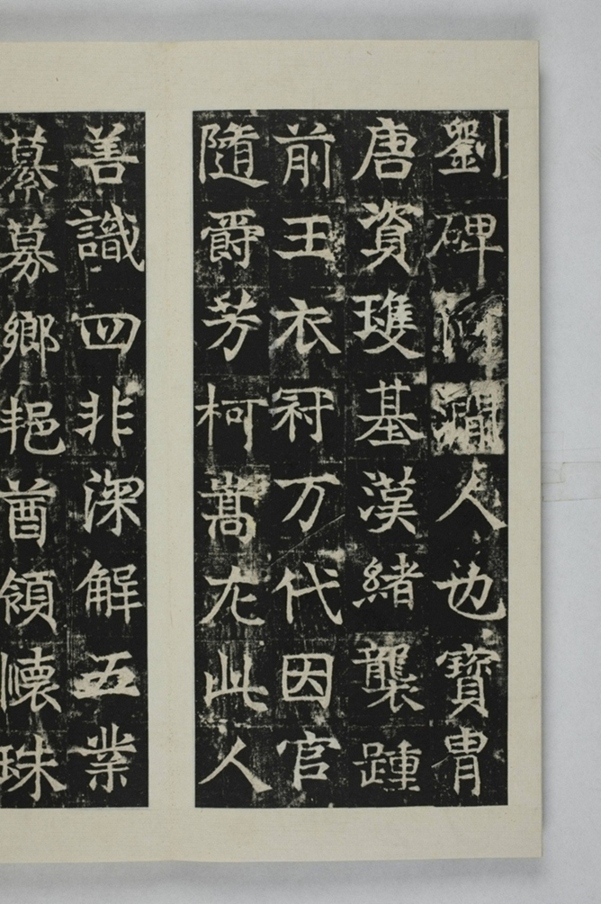 劉碑人也寶胄
唐資基漢緒襲踵
前王衣冠万代因官
隨爵芳柯嵩左此人
善識四非深解五業
募鄉酋領懷珠